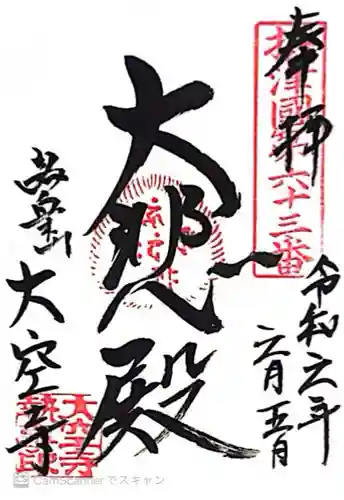 奉拝
攝津國第六十三番
令和六年
六月五日
大悲殿
大空寺
CamScanner でスキャン